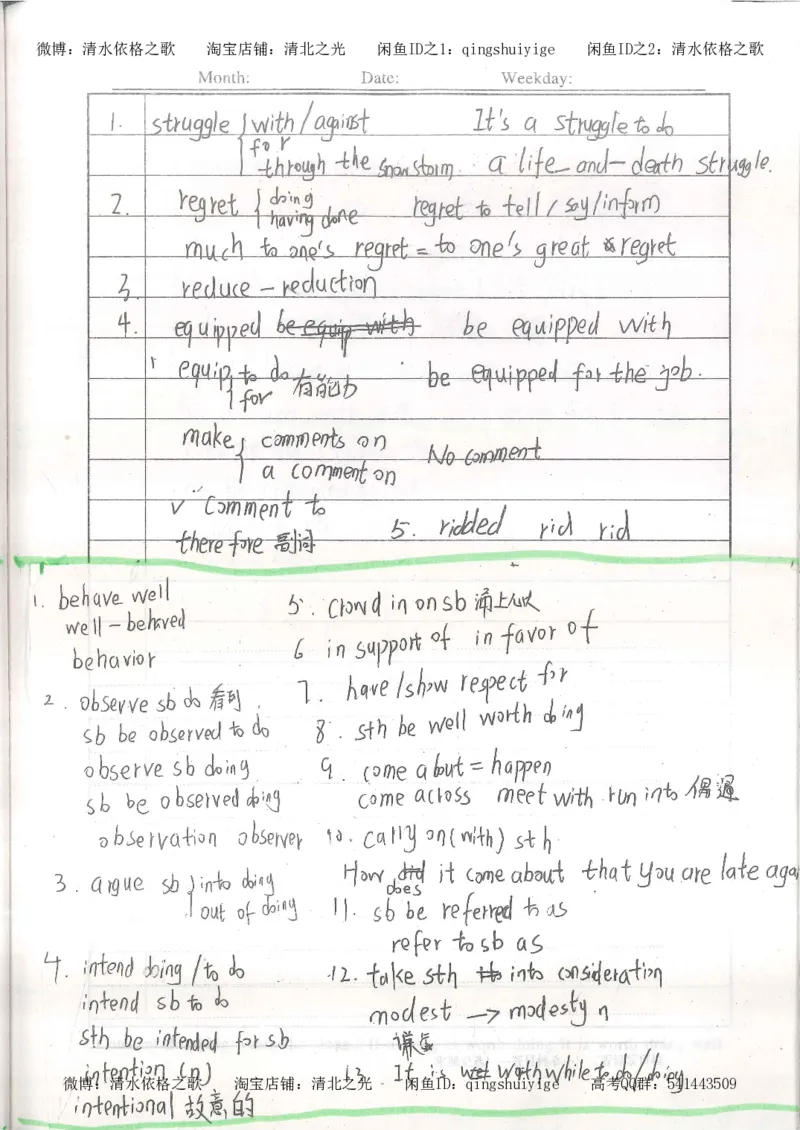 微博：清水依格之歌 淘宝店铺：清北之光 闲鱼ID之1：qingshuiyige 闲鱼ID之2：清水依格之歌
Month: Date: Weekday:
1. struggle with/against It's a struggle to do
for
through the snowstorm. a life-and-death struggle.
2. regret doing regret to tell/say/inform
having done
much to one's regret = to one's great regret
3. reduce - reduction
4. equipped be equip with be equipped with
equip to do 有能力 be equipped for the job.
for
make comments on No comment
a comment on
√ Comment to
therefore 副词 5. ridded rid rid
1. behave well
well-behaved
behavior
2. observe sb do 看到.
sb be observed to do
observe sb doing
sb be observed doing
observation observer
3. argue sb into doing
out of doing
4. intend doing/to do
intend sb to do
sth be intended for sb
intention (n)
intentional 故意的
5. crowd in on sb 涌上心头
6 in support of in favor of
7. have/show respect for
8. sth be well worth doing
9. come about = happen
come across meet with run into 偶遇
10. carry on (with) sth
How did it come about that you are late agai
does
11. sb be referred to as
refer to sb as
12. take sth into consideration
modest → modesty n
谦虚
13. It is worthwhile to do/doing
微博：清水依格之歌 淘宝店铺：清北之光 闲鱼ID：qingshuiyige 高考QQ群：541443509